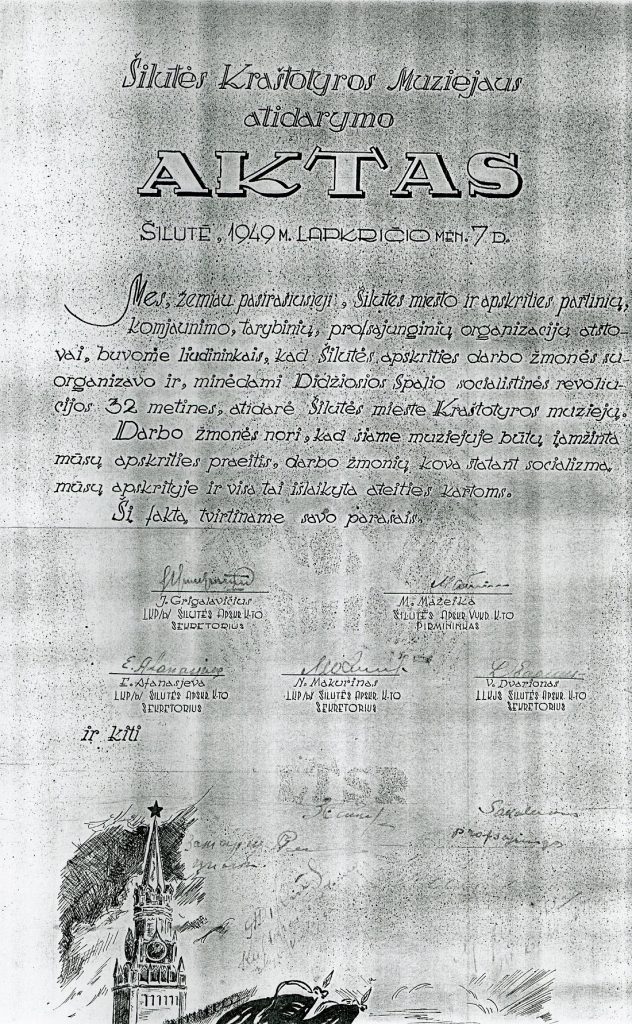 Šilutės Kraštotyros Muziejaus
atidarymo
AKTAS
ŠILUTĖ, 1949 M. LAPKRIČIO MĖN. 7 D.
Mes, žemiau pasirašiusieji, Šilutės miesto ir apskrities partinių,
komjaunimo, tarybinių, profsąjunginių organizacijų atsto-
vai, buvome liudininkais, kad Šilutės apskrities darbo žmonės su-
organizavo ir, minėdami Didžiosios Spalio socialistinės revoliu-
cijos 32 metines, atidarė Šilutės mieste Kraštotyros muziejų.
Darbo žmonės nori, kad šiame muziejuje būtų įamžinta
mūsų apskrities praeitis, darbo žmonių kova statant socializmą
mūsų apskrityje ir visa tai išlaikyta ateities kartoms.
Šį faktą tvirtiname savo parašais.
J. Grigalavičius
LKP/b/ ŠILUTĖS APSKR. K-TO
SEKRETORIUS
M. Mažeika
ŠILUTĖS APSKR. VYKD. K-TO
PIRMININKAS
E. Afanasjeva
E. Afanasjeva
LKP/b/ ŠILUTĖS APSKR. K-TO
SEKRETORIUS
N. Makurinas
LKP/b/ ŠILUTĖS APSKR. K-TO
SEKRETORIUS
V. Dvarionas
LLKJS ŠILUTĖS APSKR. K-TO
SEKRETORIUS
ir kiti